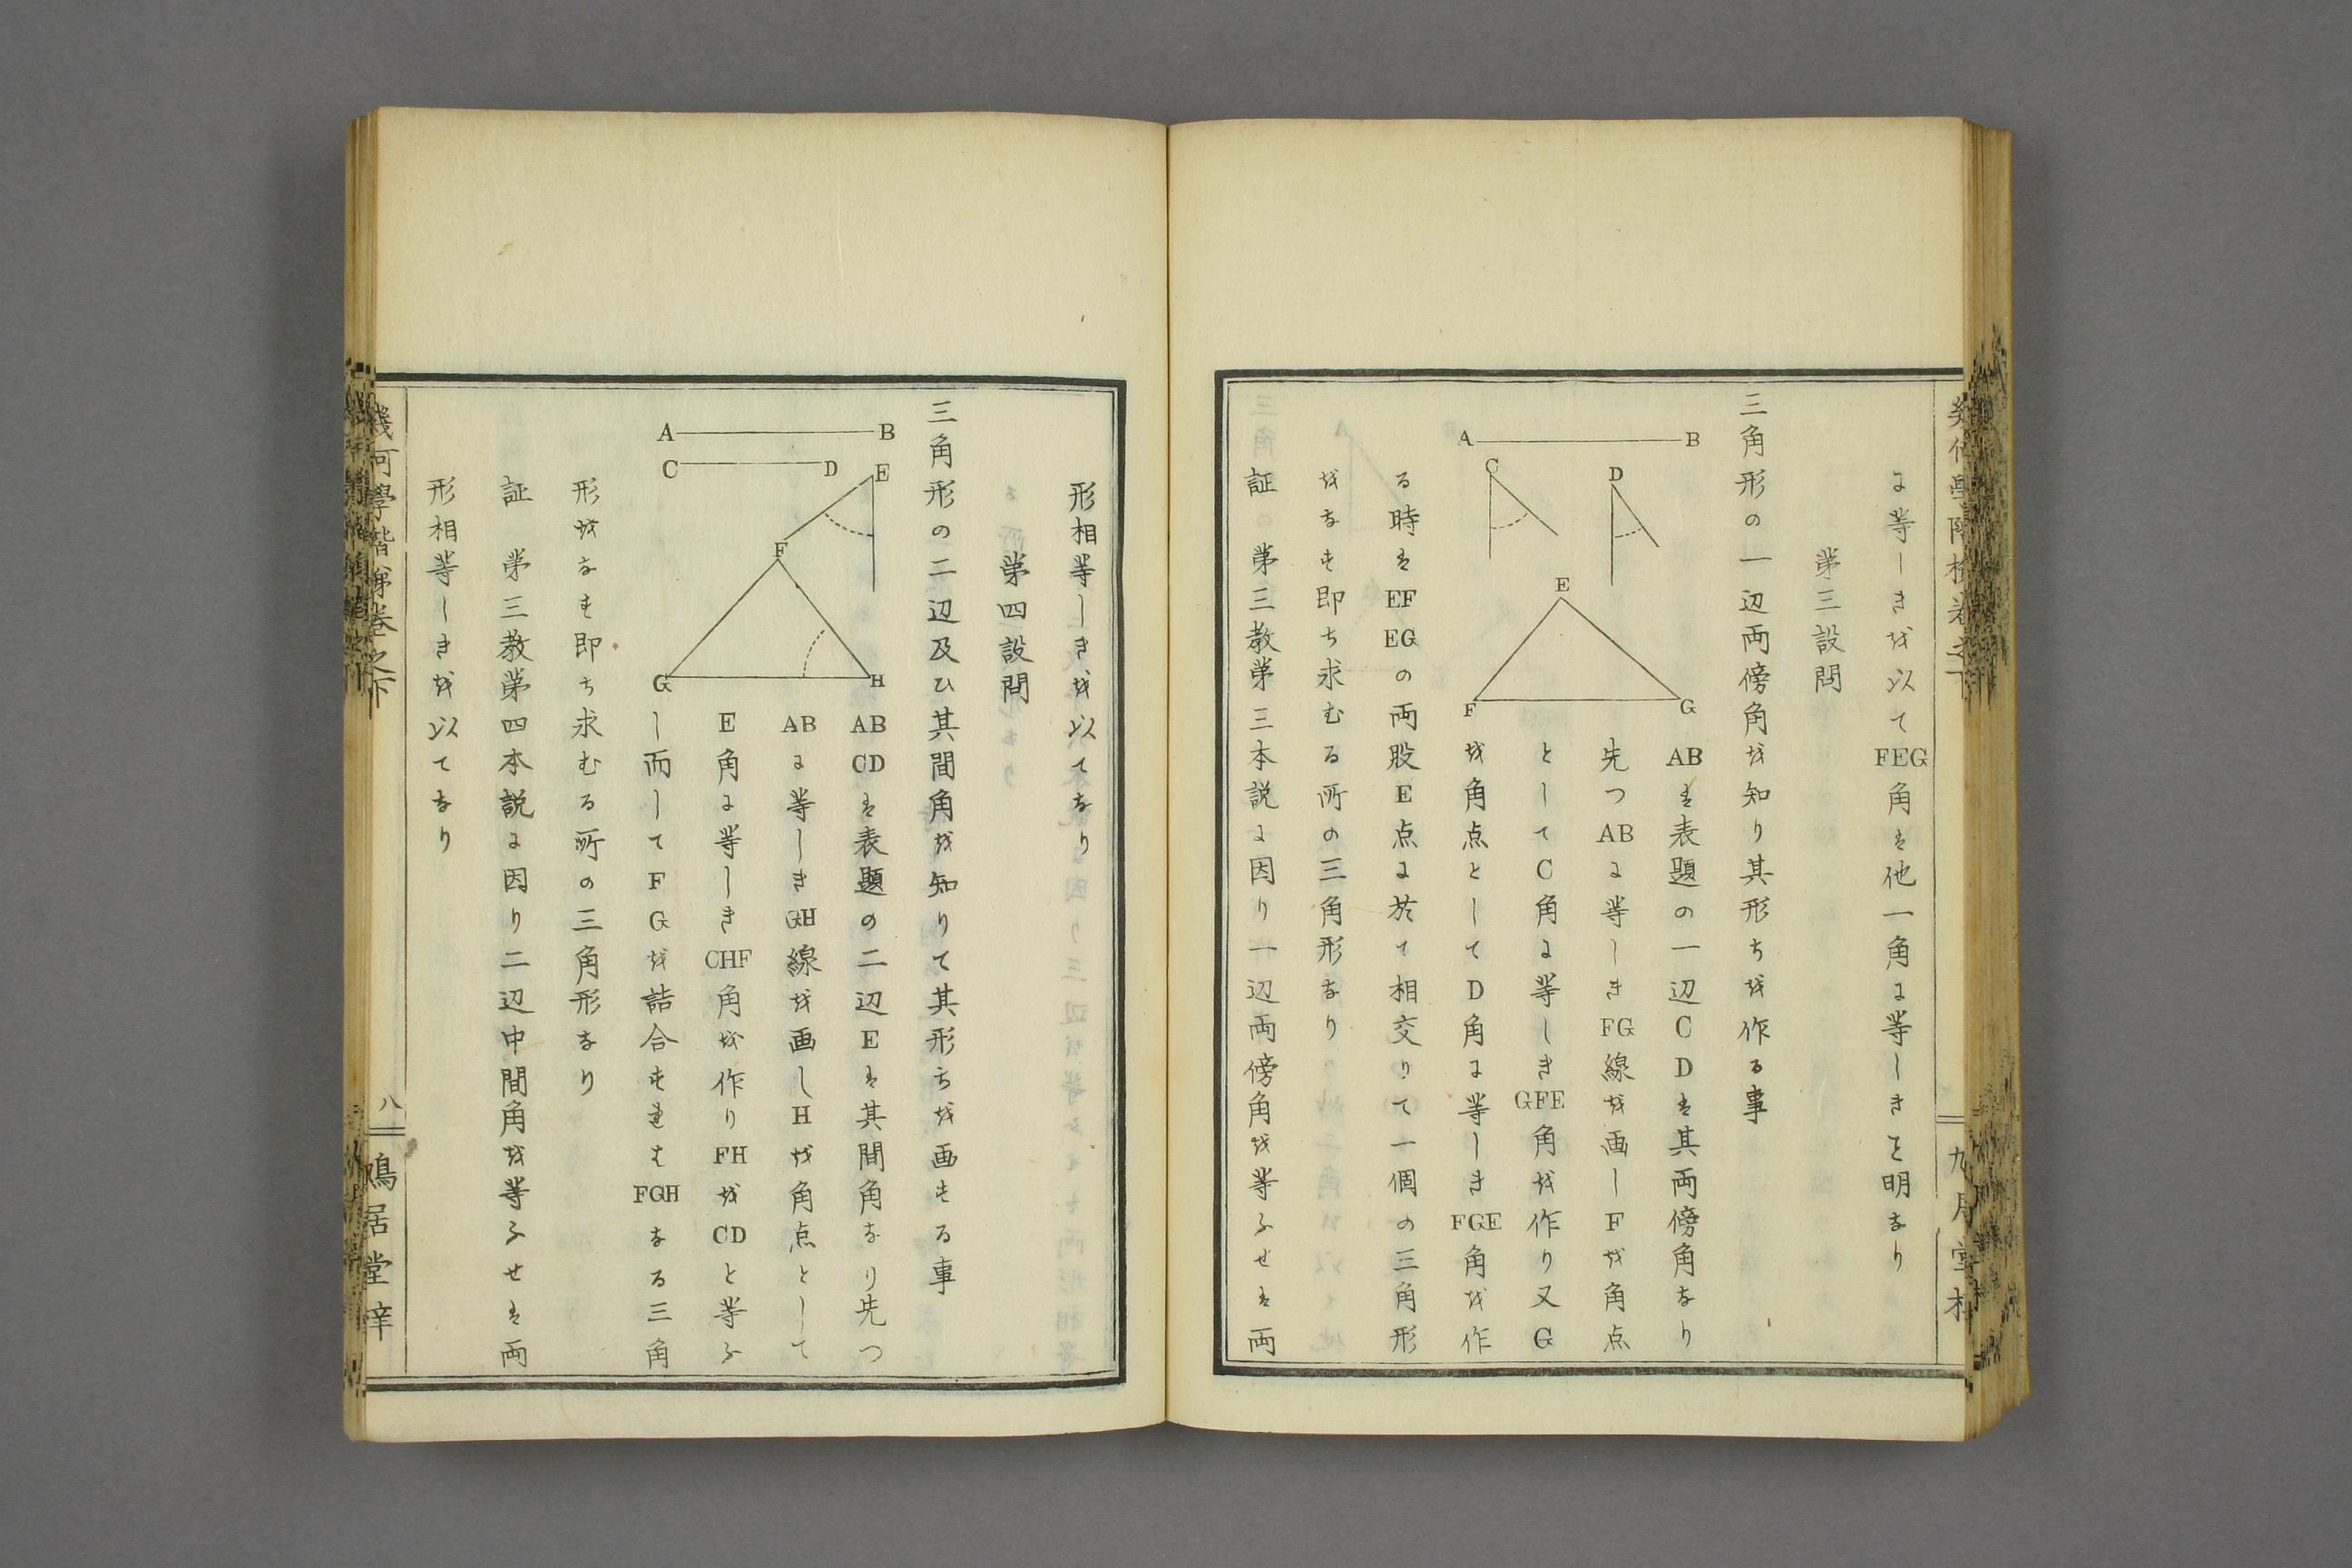 に等しきを以て FEG 角は他一角に等しきと明なり
第三設問
三角形の一辺両傍角を知り其形ちを作る事
A B
C D
E
F G
AB は表題の一辺 C D は其両傍角なり
先つ AB に等しき FG 線を画し F を角点
として C 角に等しき GFE 角を作り又 G
を角点として D 角に等しき FGE 角を作
る時は EF EG の両股 E 点に於て相交りて一個の三角形
をなす即ち求むる所の三角形なり
証 第三教第三本説に因り一辺両傍角を等ふせは両
形相等しきを以てなり
第四設問
三角形の二辺及ひ其間角を知りて其形ちを画する事
A B
C D E
F
G H
AB CD は表題の二辺 E は其間角なり先つ
AB に等しき GH 線を画し H を角点として
E 角に等しき CHF 角を作り FH を CD と等ふ
し而して F G を詰合すれは FGH なる三角
形をなす即ち求むる所の三角形なり
証 第三教第四本説に因り二辺中間角を等ふせは両
形相等しきを以てなり
幾可學階梯巻之下
八
鳴居堂梓